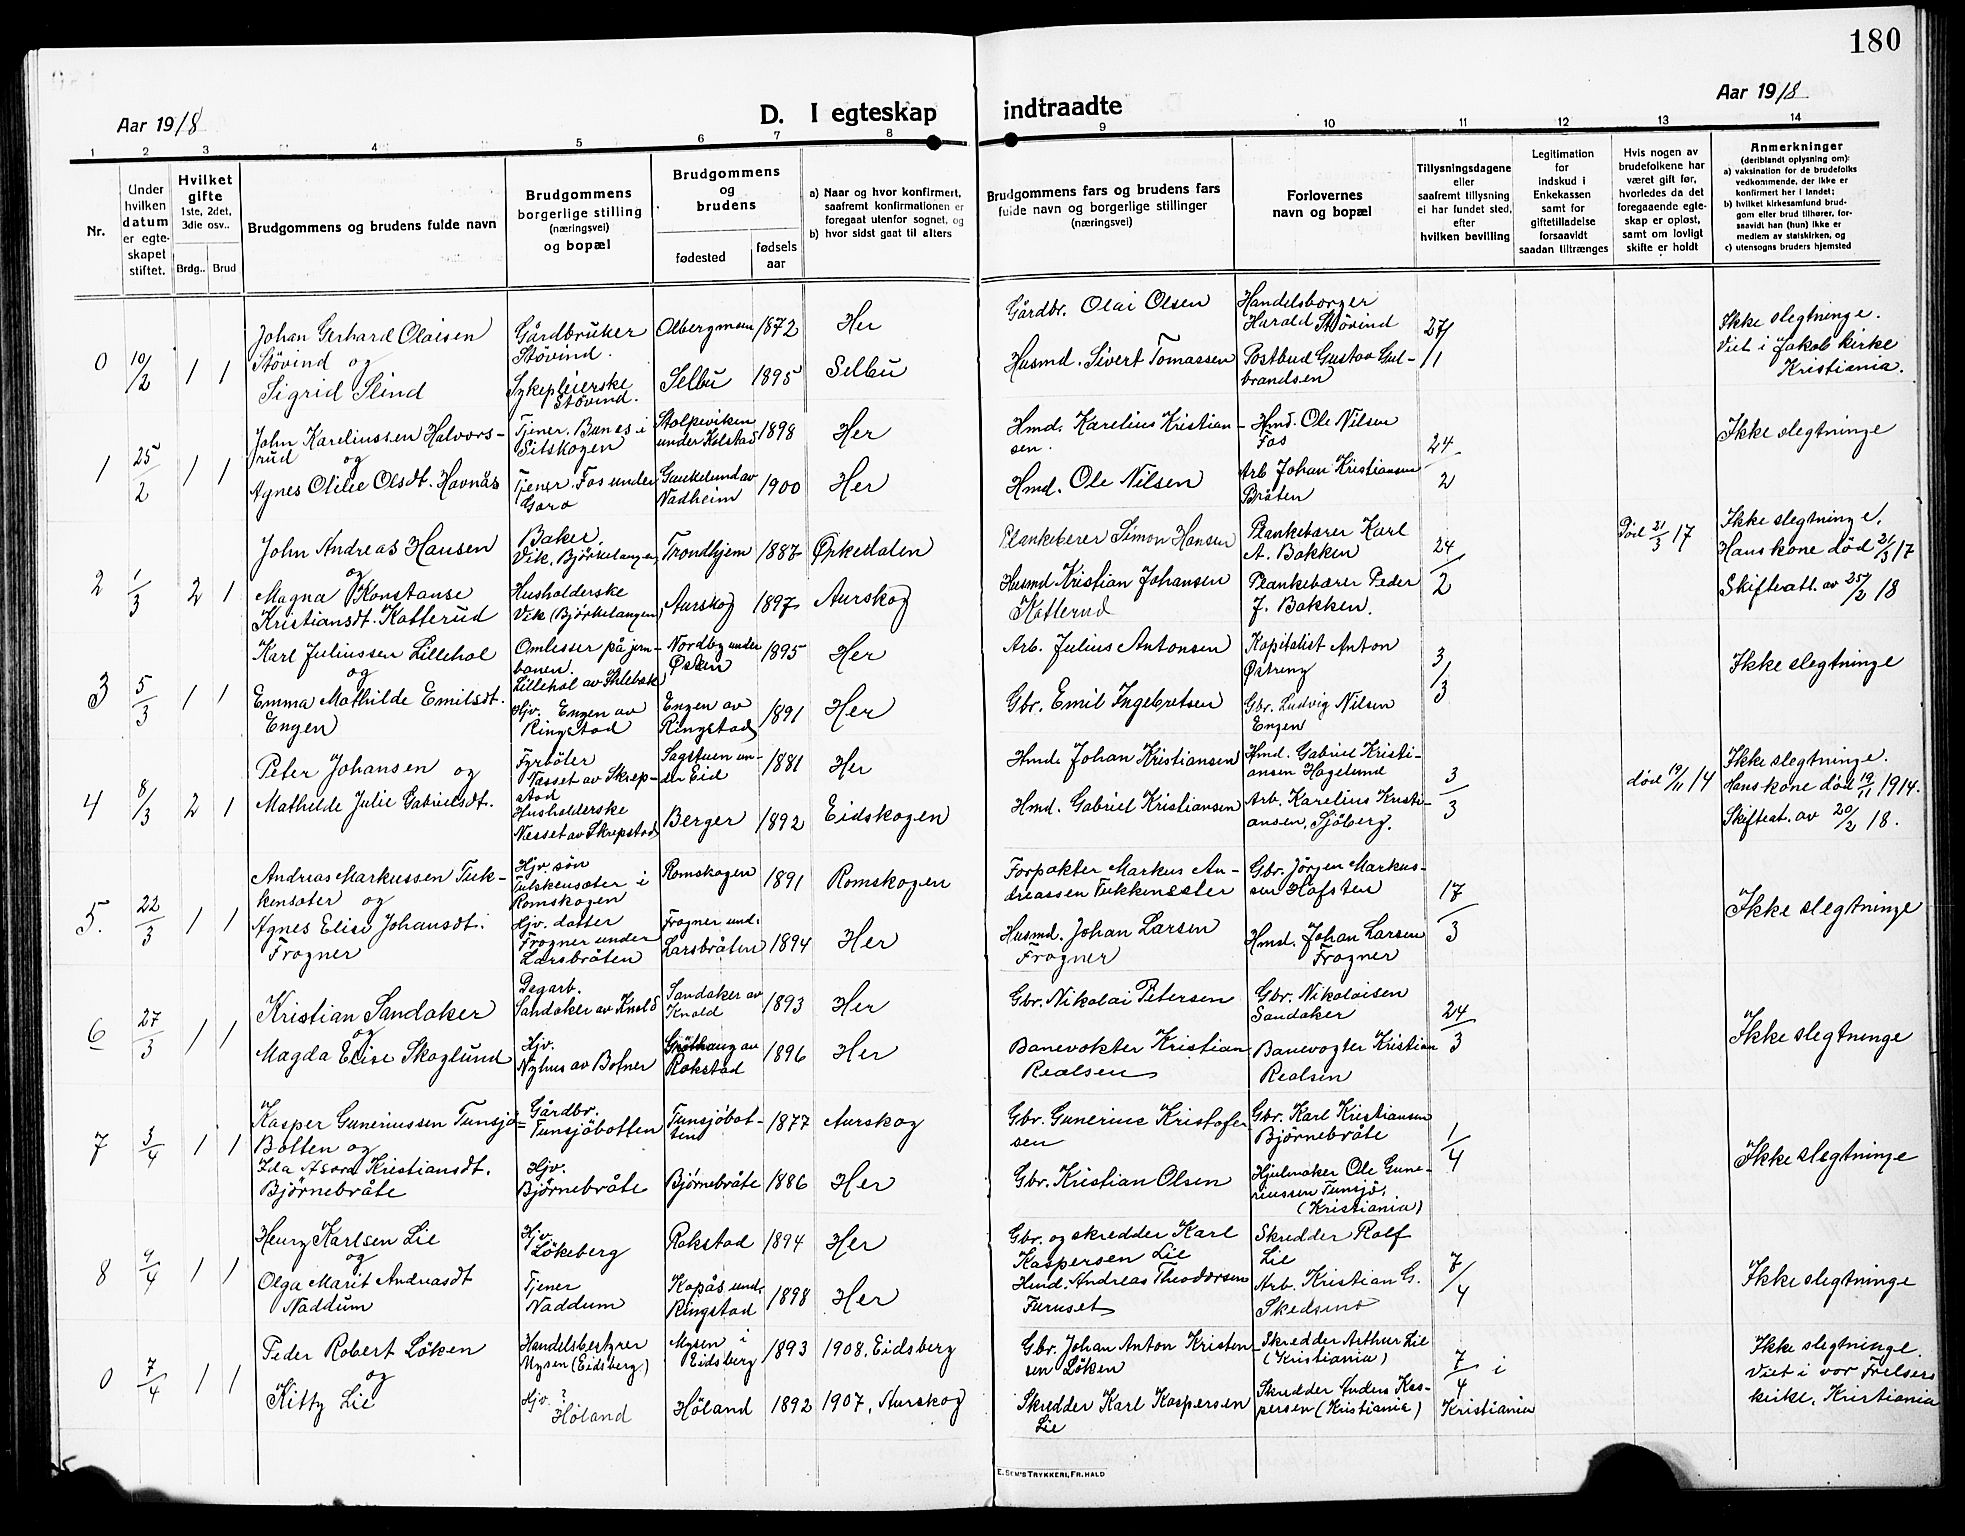 180
Aar 1918
D. I egteskap indtraadte
Aar 1918
1 2 3 4 5 6 7 8 9 10 11 12 13 14
Nr.
Under hvilken datum er egteskapet stiftet.
Hvilket gifte 1ste, 2det, 3die osv..
Brdg.. Brud
Brudgommens og brudens fulde navn
Brudgommens borgerlige stilling (næringsvei) og bopæl
Brudgommens og brudens
fødested
fødsels aar
a) Naar og hvor konfirmert, saafremt konfirmationen er foregaat utenfor sognet, og
b) hvor sidst gaat til alters
Brudgommens fars og brudens fars fulde navn og borgerlige stillinger (næringsvei)
Forlovernes navn og bopæl
Tillysningsdagene eller saafremt tillysning ei har fundet sted, efter hvilken bevilling
Legitimation for indskud i Enkekassen samt for giftetilladelse forsaavidt saadan tiltrænges
Hvis nogen av brudefolkene har været gift før, hvorledes da det foregaaende egteskap er opløst, samt om lovligt skifte er holdt
Anmerkninger (deriblandt oplysning om):
a) vaksination for de brudefolks vedkommende, der ikke er konfirmert her i landet;
b) hvilket kirkesamfund brudgom eller brud tilhører, forsaavidt han (hun) ikke er medlem av statskirken, og
c) utensogns bruders hjemsted
0 10/2 1 1
Johan Gerhard Olaisen
Stövind og
Sigrid Slind
Gårdbruker
Stövind.
Sykepleierske
Stövind.
1872 Her
Selbu 1895 Selbu
Gårdbr. Olai Olsen
Husmd. Sivert Tomassen
Handelsborger
Harald Stövind
Postbud Gustav Gulbrandsen
27/1
Ikke slegtninge.
Viet i Jakob kirke
Kristiania.
1 25/2 1 1
John Kareliussen Halvorsrud
og
Agnes Olilie Olsdt. Havnäs
Tjener. Banes i
Sitskogen
Tjener. Fos under
Garo
Stolpeviken
under Kolstad 1898 Her
Gaukelund av
Nadheim 1900 Her
Hmd. Karelius Kristiansen.
Hmd. Ole Nilsen
Hmd. Ole Nilsen
Fos
Arb Johan Kristiansen
Bråten
24/2
Ikke slegtninge
2 1/3 2 1
John Andreas Hansen
og
Magna Konstanse
Kristiansdt. Katterud
Baker,
Vik, Björkelangen
Husholderske
Vik (Björkelangen)
Trondhjem 1887 Ørkedalen
Aurskog 1897 Aurskog
Plankebærer Simon Hansen
Husmd Kristian Johansen
Katterud
Plankebærer Karl
A. Bakken
Plankebærer Peder
J. Bakken.
24/2
Död 21/3 17
Ikke slegtninge,
Hans kone död 21/3 17
Skifteatt. av 25/2 18
3 5/3 1 1
Karl Juliussen Lillehol
og
Emma Mathilde Emilsdt.
Engen
Omlesser på jernbanen.
Lillehol av
Hjv. Engen av
Ringstad
Nordby under
Østen 1895 Her
Engen av
Ringstad 1891 Her
Arb. Julius Antonsen
Gbr. Emil Ingebretsen
Kapitalist Anton
Østreng
Gbr. Ludvig Nilsen
Engen
3/3
Ikke slegtninge
4 8/3 2 1
Peter Johansen og
Mathilde Julie Gabrielsdt.
Fyrböter
Næsset av Skrepstad
Husholderske
Nesset av Skrepstad
Sagstuen under Eid 1881 Her
Berger 1892 Eidskogen
Hmd. Johan Kristiansen
Hmd. Gabriel Kristiansen
Hmd. Gabriel Kristiansen Hagelund
Arb. Karelius Kristiansen, Sjöberg.
3/3
död 19/11 14
Ikke slegtninge.
Hans kone död 19/11 1914.
Skifteat. av 20/2 18.
5. 22/3 1 1
Andreas Markussen Tukkensäter og
Agnes Elise Johansdt.
Frogner
Hjv. sön
i
Romskogen
Hjv. datter
Frogner under
Larsbråten
Romskogen 1891 Romskogen
Frogner und.
Larsbråten 1894 Her
Forpakter Markus Andreassen Tukkensæter
Husmd. Johan Larsen
Frogner
Gbr. Jörgen Markussen Hafsten
Hmd. Johan Larsen
Frogner
17/3
Ikke slegtninge
6 27/3 1 1
Kristian Sandaker
og
Magda Elise Skoglund
Degarb.
Sandaker av Knold
Hjv.
Nyhus av Botner
Sandaker av
Knold 1893 Her
Gröthaug av
Rakstad 1896 Her
Gbr. Nikolai Petersen
Banevokter Kristian
Realsen
Gbr. Nikolaisen
Sandaker
Banevogter Kristian
Realsen
24/3
Ikke slegtninge
7 3/4 1 1
Kasper Gunerinssen Tunsjö=
Botten og
Ida Asora Kristiansdt.
Björnebråte
Gårdbr.
Tunsjöbotten
Hjv.
Björnebråte
Tunsjöbotten 1877 Aurskog
Björnebråte 1886 Her
Gbr. Gunerius Kristofersen
Gbr. Kristian Olsen
Gbr. Karl Kristiansen
Björnebråte
Hjulmaker Ole Guneriussen Tunsjö,
(Kristiania)
1/4
Ikke slegtninge
8 4/4 1 1
Henry Karlsen Lie
og
Olga Marit Andreasdt
Naddum
Hjv.
Lökeberg
Tjener
Naddum
Rakstad 1894 Her
Kopås und.
Ringstad 1898 Her
Gbr. og skredder Karl
Kaspersen Lie
Hmd. Andreas Theodorsen
Furuset
Skredder Ralf
Lie
Arb. Kristian G.
Skedsmo
7/4
Ikke slegtninge
0 7/4 1 1
Peder Robert Löken
og
Kitty Lie
Handelsbestyrer
Mysen (Eidsberg)
Hjv.
Höland
Mysen i
Eidsberg 1893 1908, Eidsberg
Höland 1892 1907, Aurskog
Gbr. Johan Anton Kristensen Löken
Skredder Karl Kaspersen
Lie
Skredder Arthur Lie
(Kristiania)
Skredder Anders Kaspersen (Kristiania)
7/4 i
Kristiania
Ikke slegtninge.
Viet i vor Frelsers
kirke, Kristiania
E. SEM'S TRYKKERI, FR. HALD